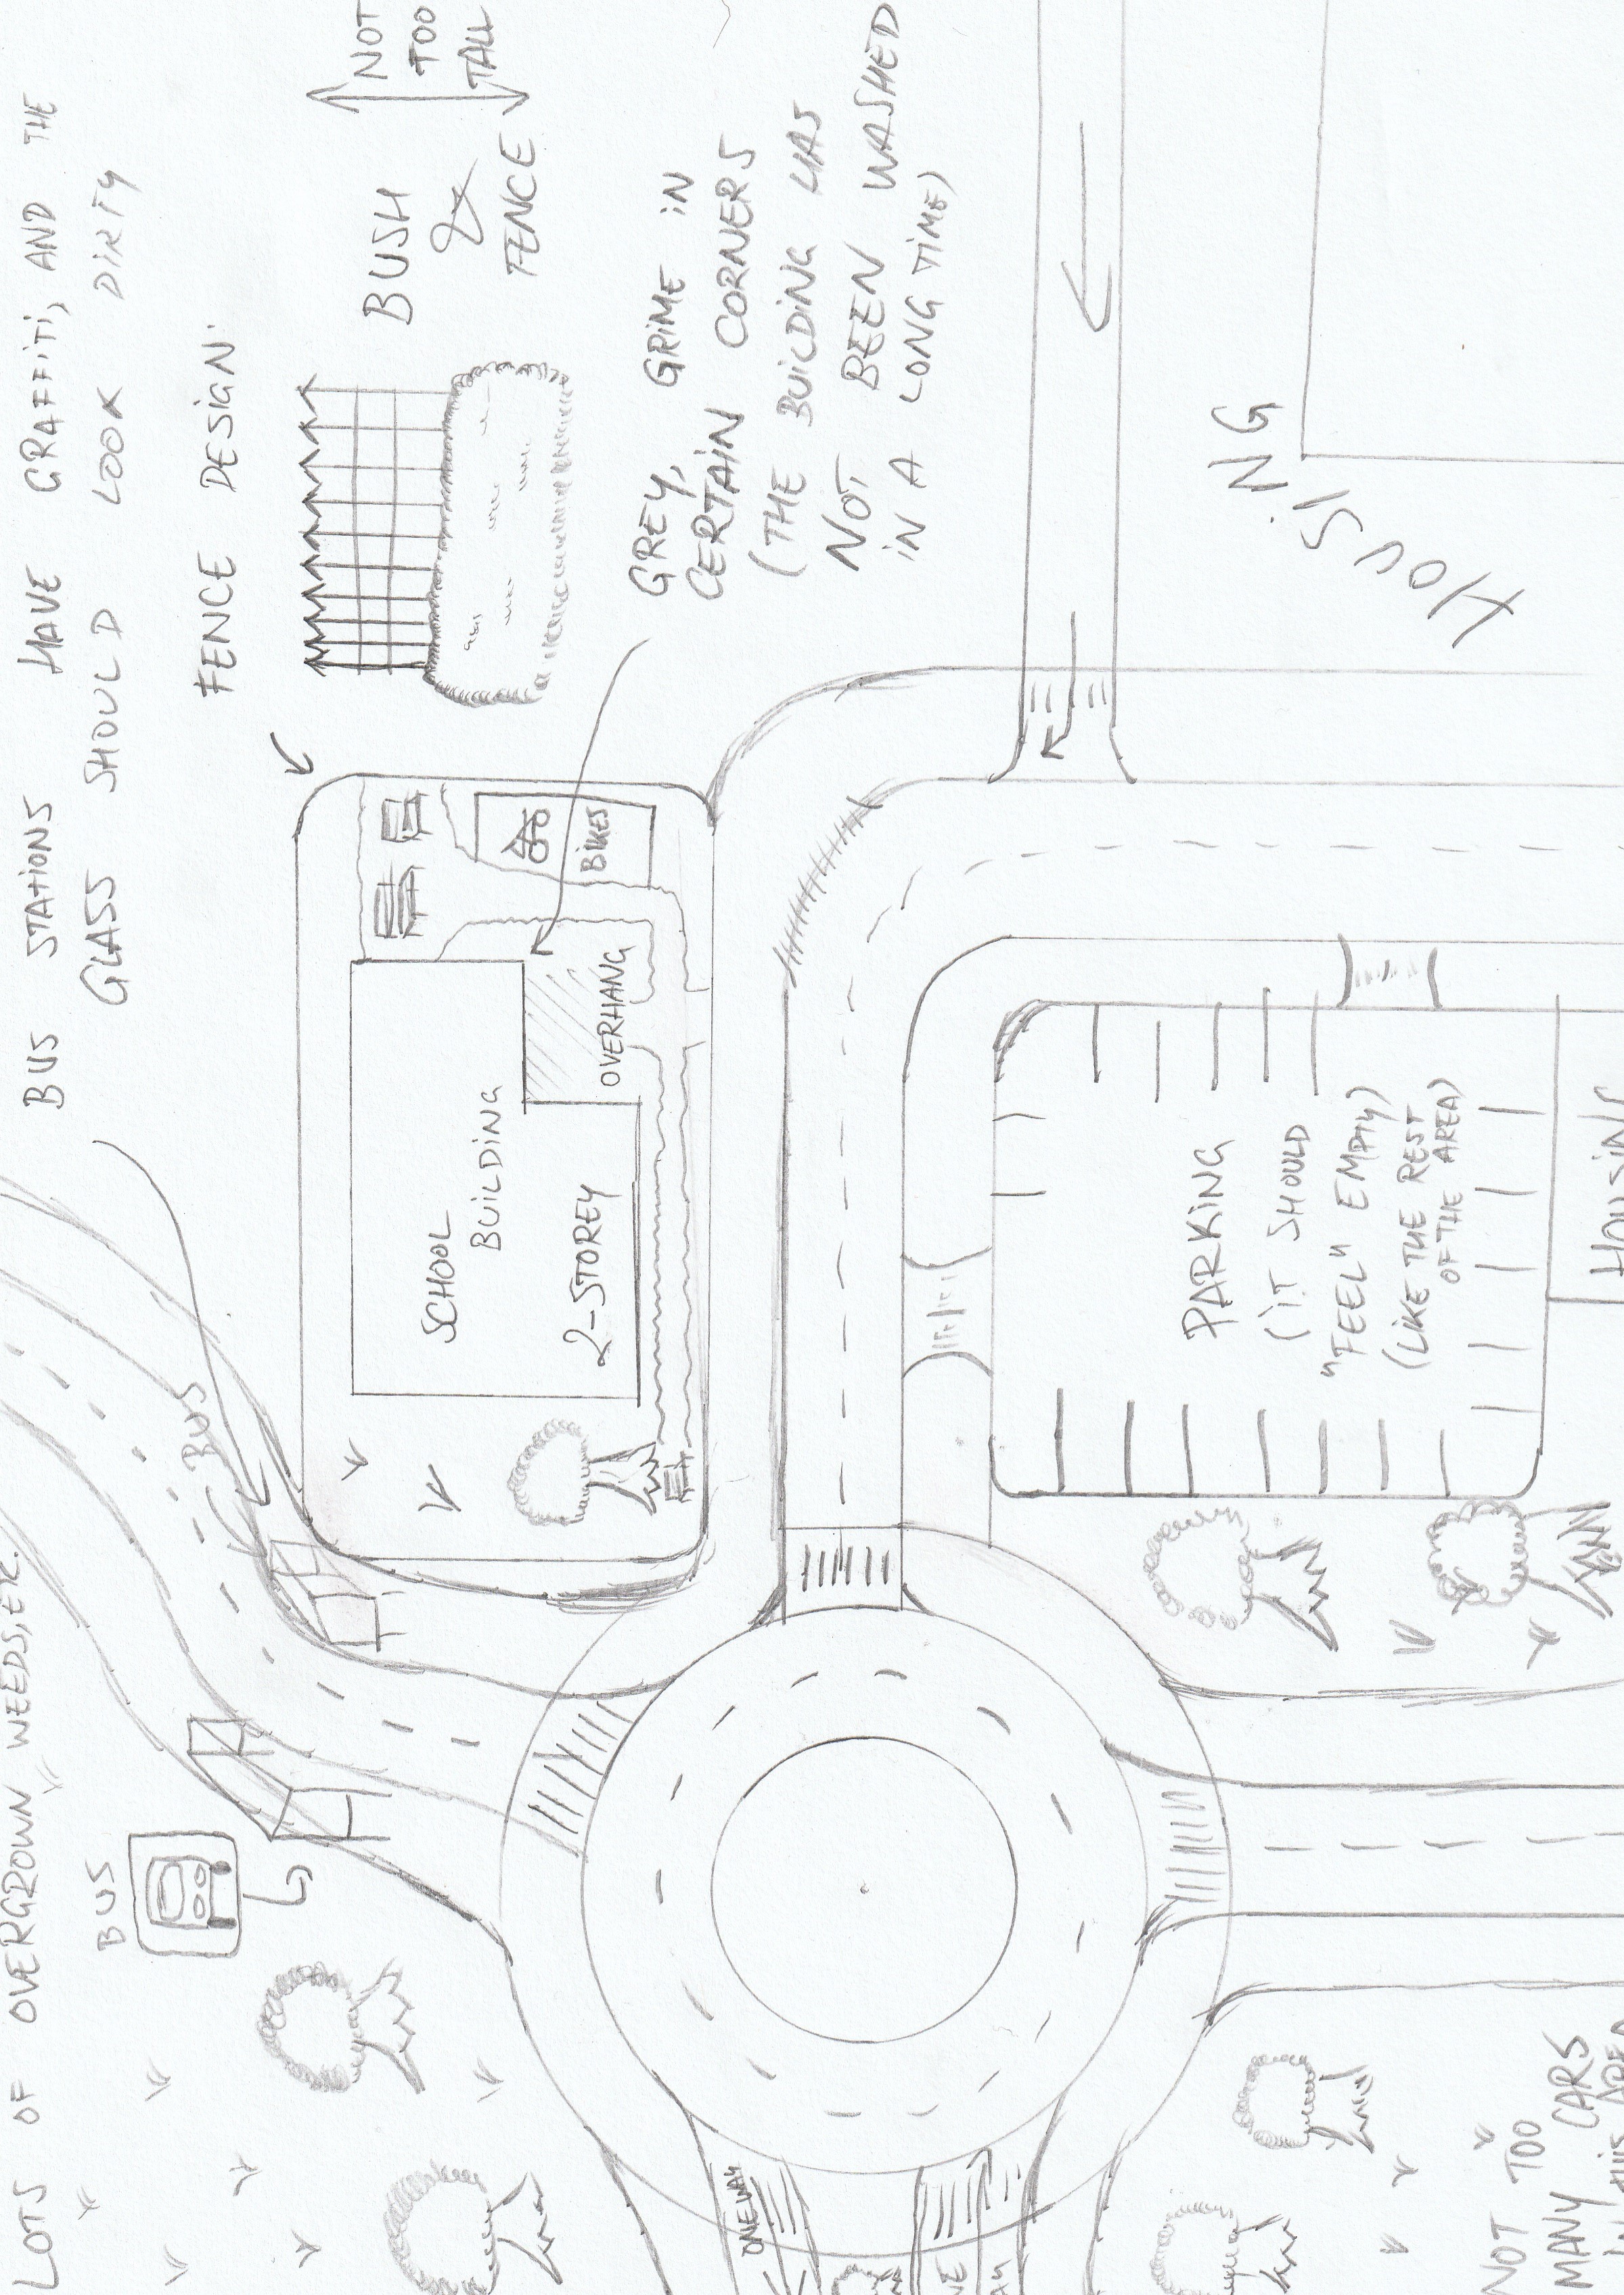 LOTS OF OVERGROWN WEEDS, ETC.
BUS STATIONS HAVE GRAFFITI, AND THE
GLASS SHOULD LOOK DIRTY
BUS
BUS
FENCE DESIGN:
BUSH
&
FENCE
NOT
TOO
TALL
SCHOOL
BUILDING
2-STOREY
OVERHANG
BIKES
GREY, GRIME IN
CERTAIN CORNERS
(THE BUILDING HAS
NOT BEEN WASHED
IN A LONG TIME)
ONE WAY
PARKING
(IT SHOULD
"FEEL" EMPTY)
(LIKE THE REST
OF THE AREA)
HOUSING
NOT TOO
MANY CARS
IN THIS AREA
HOUSING